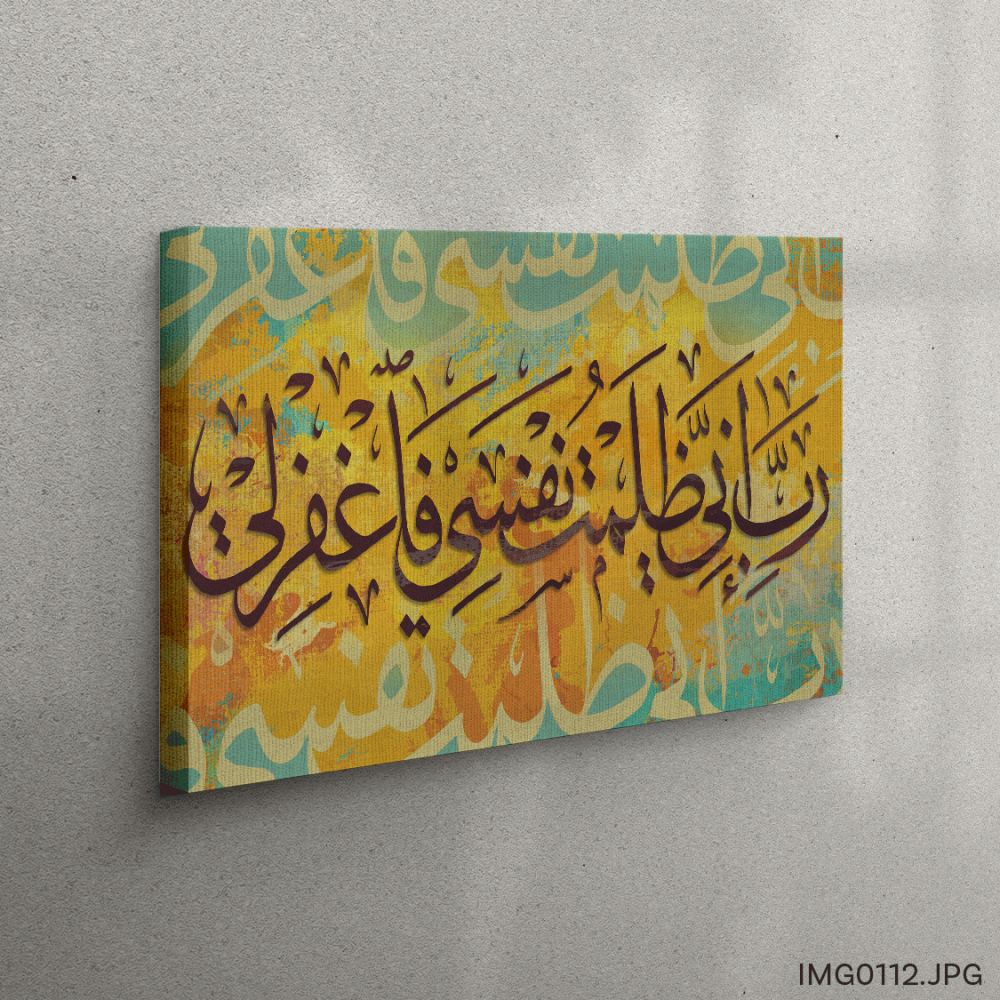 رَبِّ إِنِّي ظَلَمْتُ نَفْسِي فَاغْفِرْ لِي
IMG0112.JPG